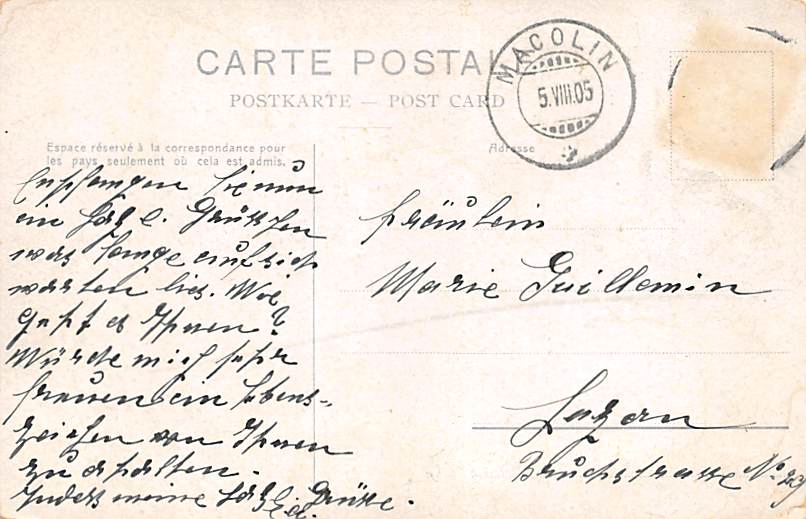 CARTE POSTAL
POSTKARTE — POST CARD
MACOLIN
5.VIII.05
Espace réservé à la correspondance pour
les pays seulement où cela est admis.
Adresse
Empfangen Sie nun
ein herzl. Grüssen
was lange auf sich
warten lies. Wie
geht es Ihnen?
Würde mich sehr
freuen ein Lebens-
zeichen von Ihnen
zu erhalten.
Indess meine herzlich. Grüsse.
Fräulein
Marie Guillemin
Luzern
Bruchstrasse No.